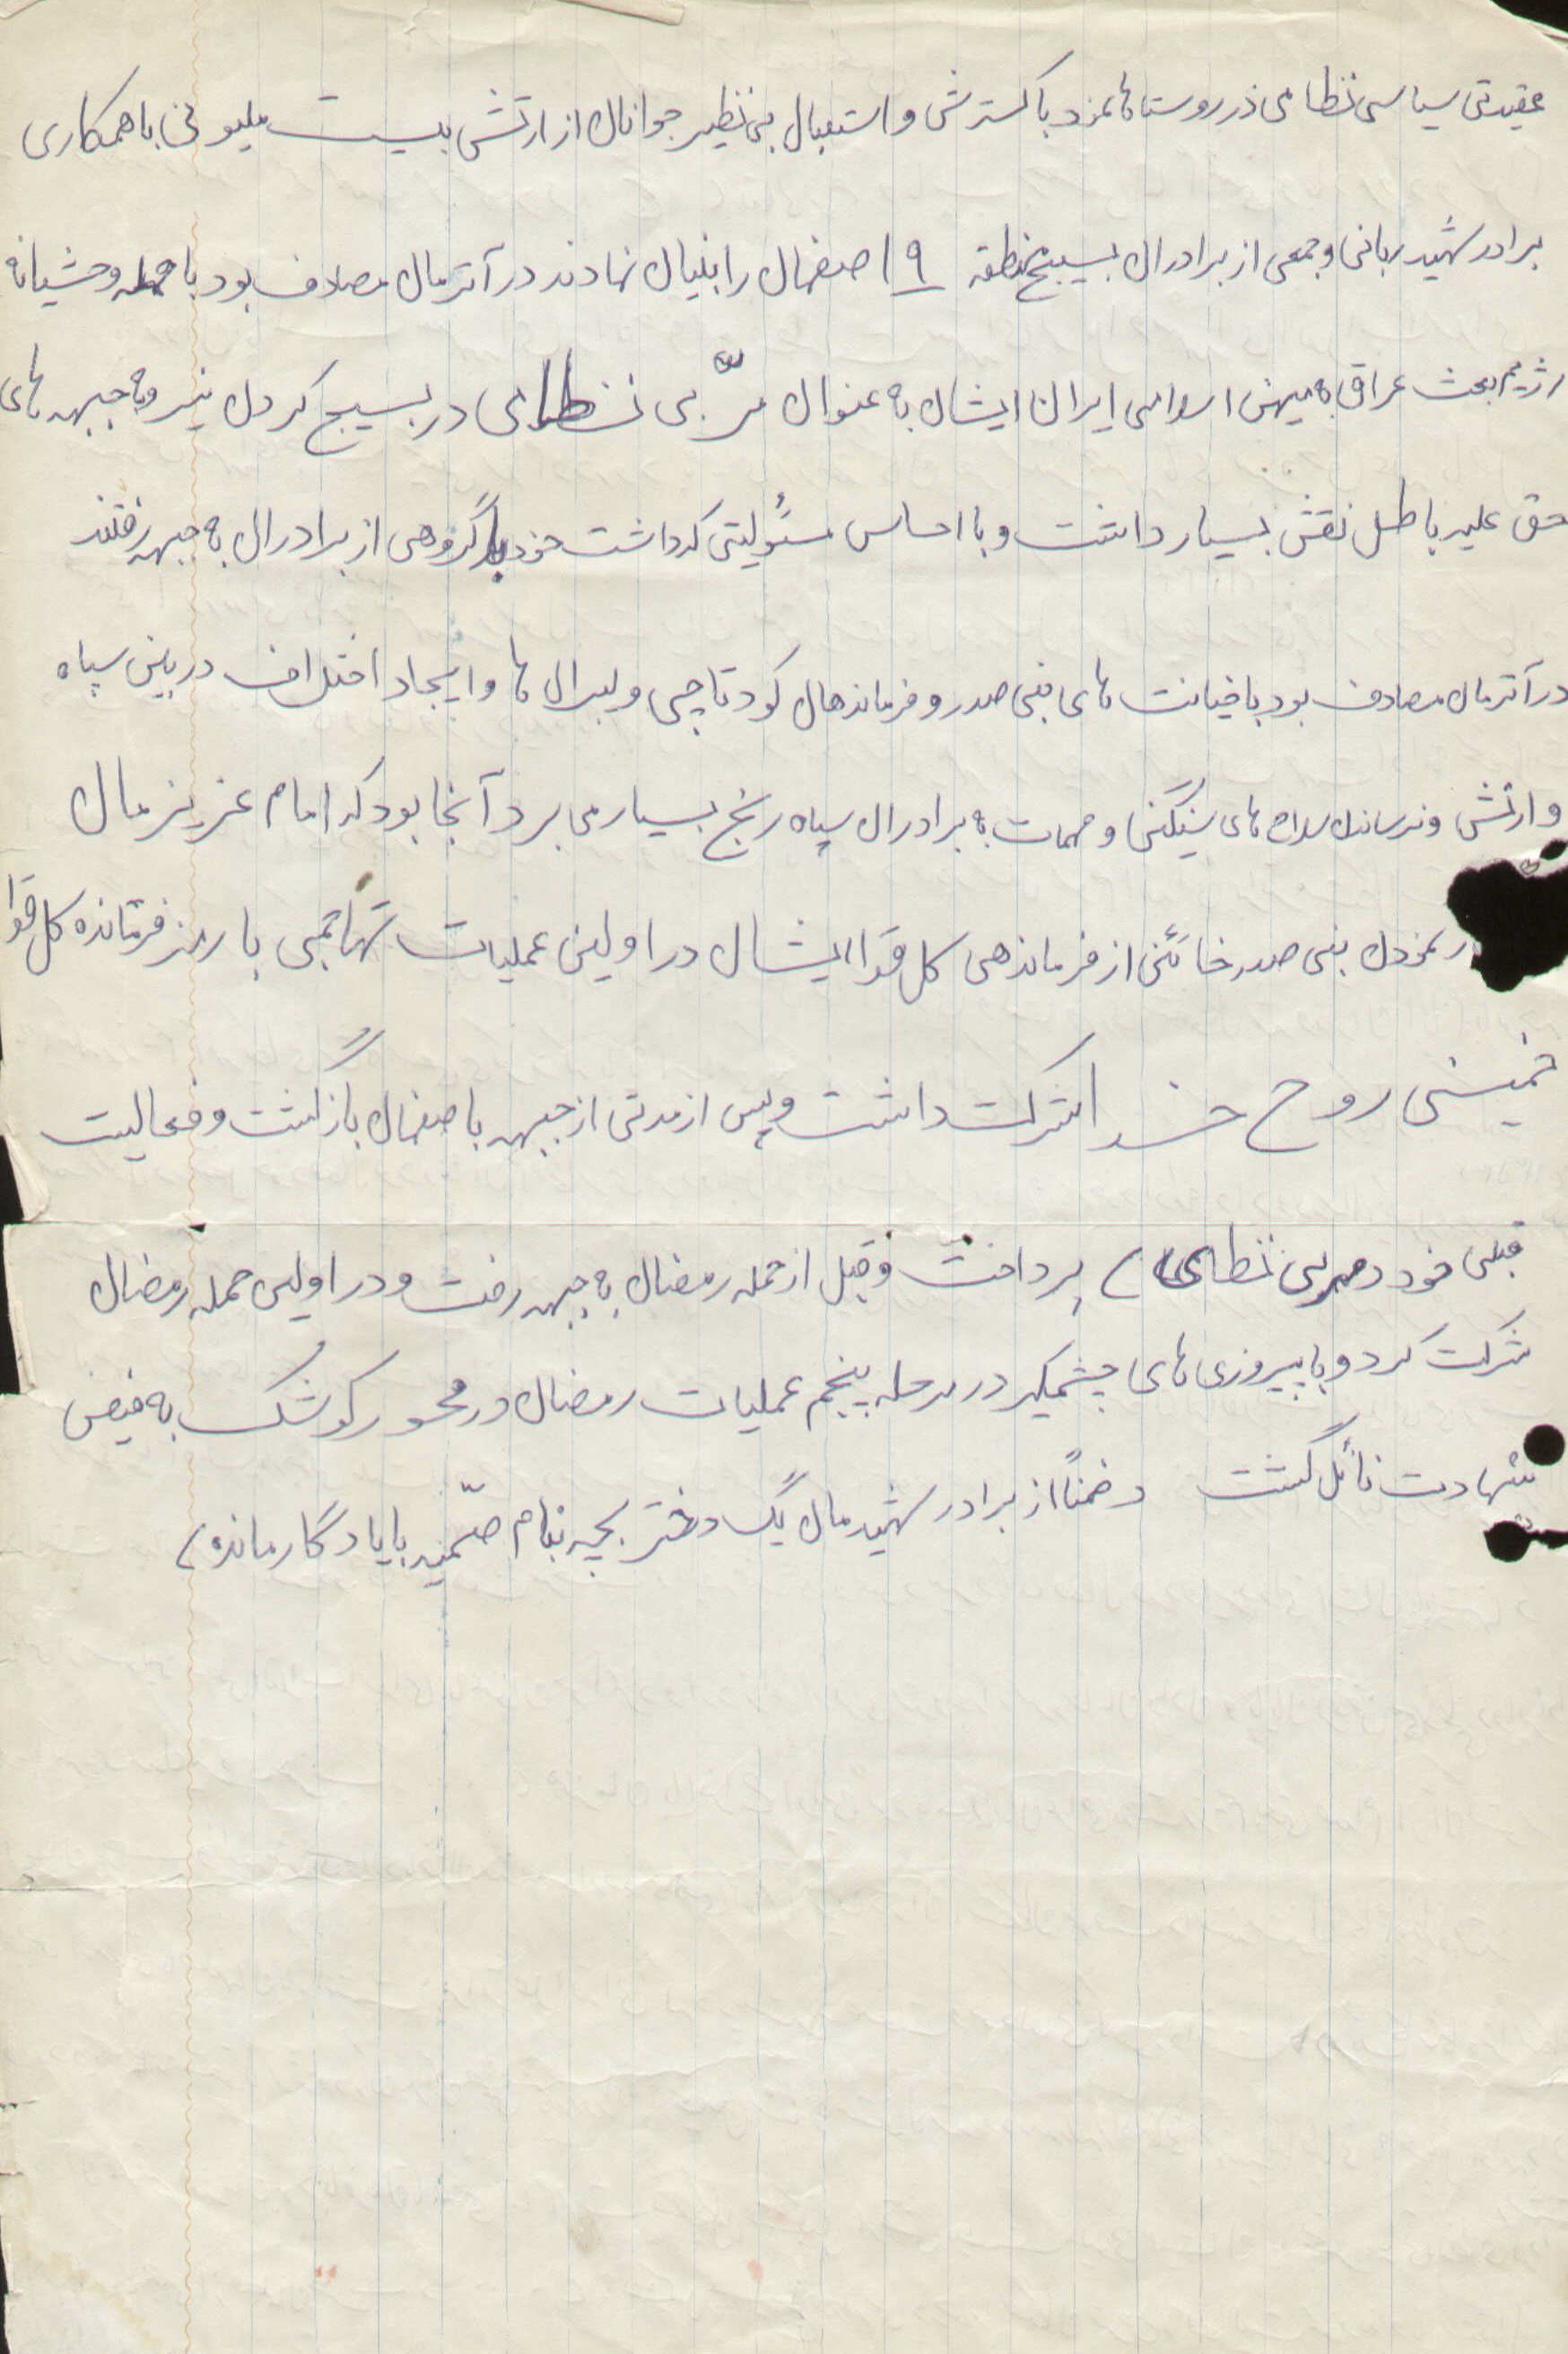 عقیدتی سیاسی نظامی در روستاها نمود با گسترش و استقبال بی نظیر جوانان از ارتش بیست ملیونی با همکاری
برادر شهید ربانی و جمعی از برادران بسیج منطقه ۹ اصفهان را بنیان نهادند در آنزمان مصادف بود با حمله وحشیانه
رژیم بعث عراق به میهن اسلامی ایران ایشان به عنوان مربّی نظامی در بسیج کردن نیرو به جبهه های
حق علیه باطل نقش بسیار داشت و با احساس مسئولیتی که داشت خود با گروهی از برادران به جبهه رفتند
در آنزمان مصادف بود با خیانت های بنی صدر و فرماندهان کودتاچی و لیبرال ها و ایجاد اختلاف در بین سپاه
و ارتش و نرساندن سلاح های سنگین و مهمات به برادران سپاه رنج بسیار می برد آنجا بود که امام عزیزمان
نمودن بنی صدر خائن از فرماندهی کل قوا ایشان در اولین عملیات تهاجمی با رمز فرمانده کل قوا
خمینی روح خدا شرکت داشت و پس از مدتی از جبهه باصفهان بازگشت و فعالیت
قبلی خود (مربی نظامی) پرداخت و قبل از حمله رمضان به جبهه رفت و در اولین حمله رمضان
شرکت کرد و با پیروزی های چشمگیر در مرحله پنجم عملیات رمضان در محور کوشک به فیض
شهادت نائل گشت و ضمناً از برادر شهیدمان یک دختر بچه بنام بیادگار مانده